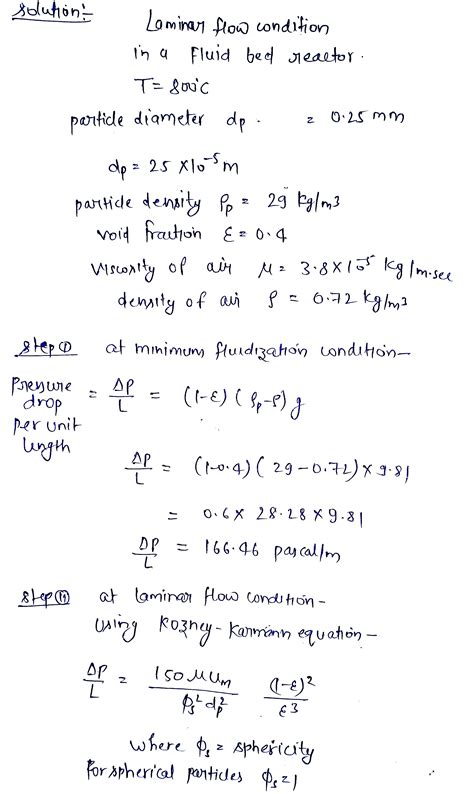 Solution:-
Laminar flow condition
in a fluid bed reactor.
T = 800°C
particle diameter dp. = 0.25 mm
dp = 25 × 10⁻⁵ m
particle density ρp = 29 kg/m3
void fraction ε = 0.4
viscosity of air μ = 3.8 × 10⁻⁵ kg/m.sec
density of air ρ = 0.72 kg/m3
Step (I) at minimum fluidization condition—
Pressure drop per unit length = ΔP/L = (1-ε) (ρp-ρ) g
ΔP/L = (1-0.4) (29-0.72) × 9.81
= 0.6 × 28.28 × 9.81
ΔP/L = 166.46 pascal/m
Step (II) at laminar flow condition-
using Kozney-Karmann equation—
ΔP/L = 150 μUm / φs² dp² (1-ε)² / ε3
where φs = sphericity
for spherical particles φs = 1